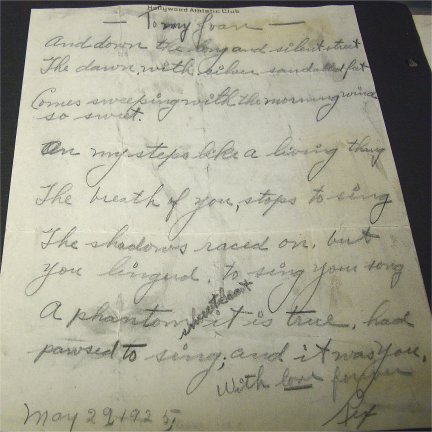 Hollywood Athletic Club
— To my Joan —
And down the long and silent street
The dawn, with silver sandalled feet
Comes sweeping with the morning wind
so sweet.
On my steps like a living thing
The breath of you, stops to sing
The shadows raced on, but
you lingerd, to sing your song
sweetheart
A phantom it is true, had
pawsed to sing, and it was you.
With love for you
May 29, 1925,